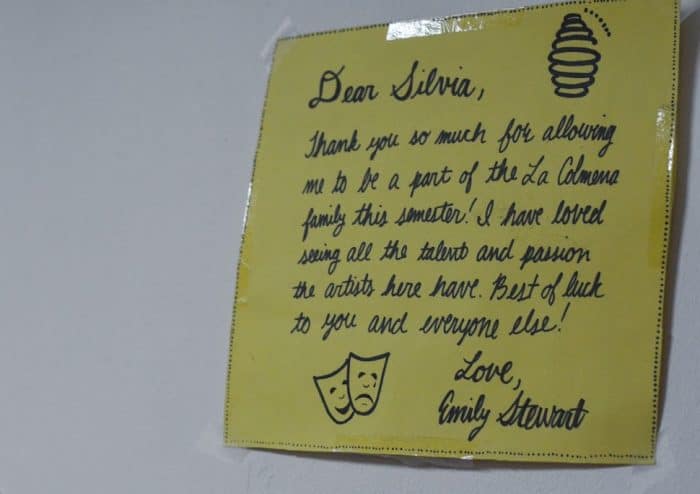 Dear Silvia,
Thank you so much for allowing
me to be a part of the La Colmena
family this semester! I have loved
seeing all the talent and passion
the artists here have. Best of luck
to you and everyone else!
Love,
Emily Stewart